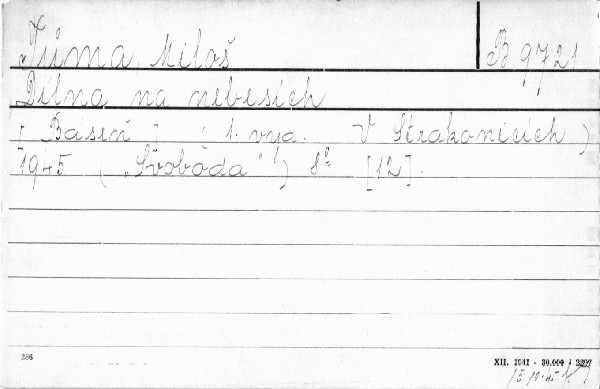 Tůma Miloš B 9721
Dílna na nebesích
[Báseň] (1. vyd. V Strakonicích)
1945 („Svoboda") 8° [12].
286
XII. 1941 - 30.000 / 2297